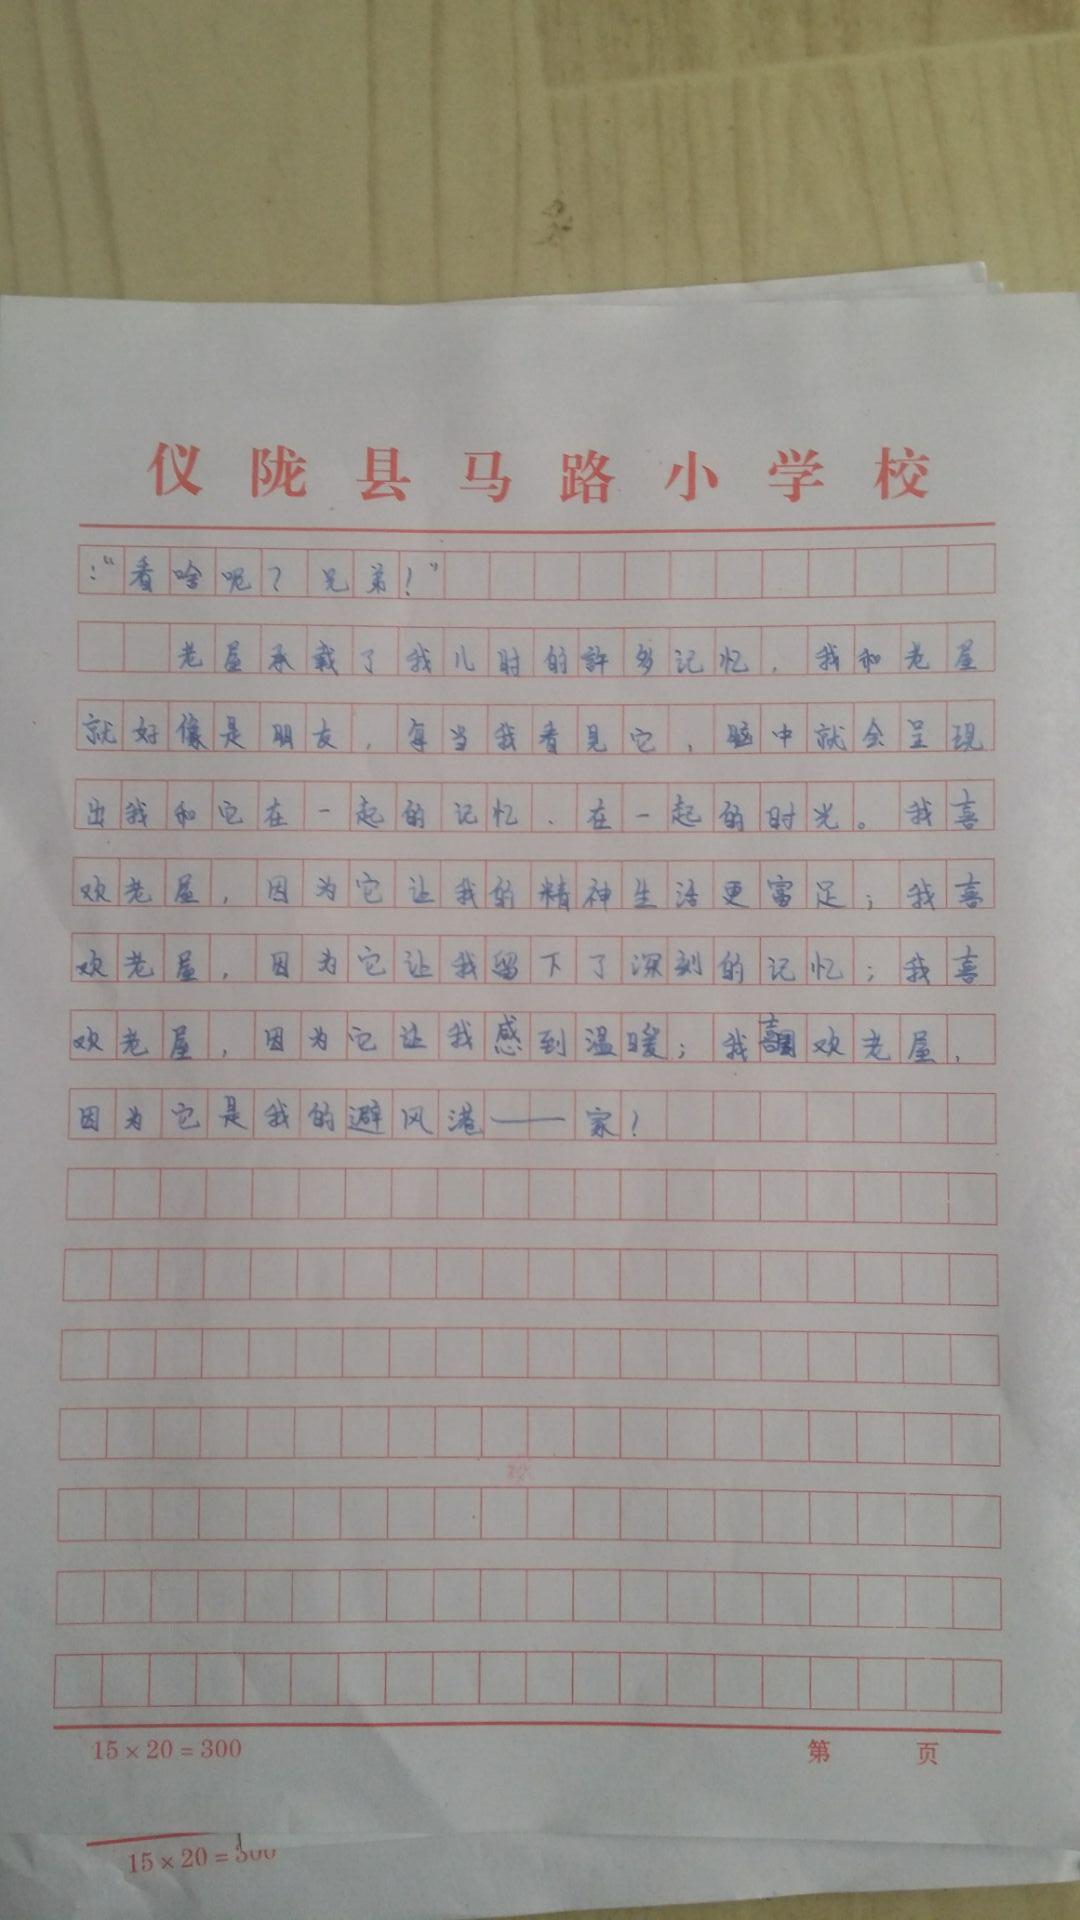 仪陇县马路小学校
：“看啥呢？兄弟！”
老屋承载了我儿时的許多记忆，我和老屋
就好像是朋友，每当我看见它，脑中就会呈现
出我和它在一起的记忆、在一起的时光。我喜
欢老屋，因为它让我的精神生活更富足；我喜
欢老屋，因为它让我留下了深刻的记忆；我喜
欢老屋，因为它让我感到温暖；我喜欢老屋，
因为它是我的避风港——家！
15×20=300
第 页
15×20=300